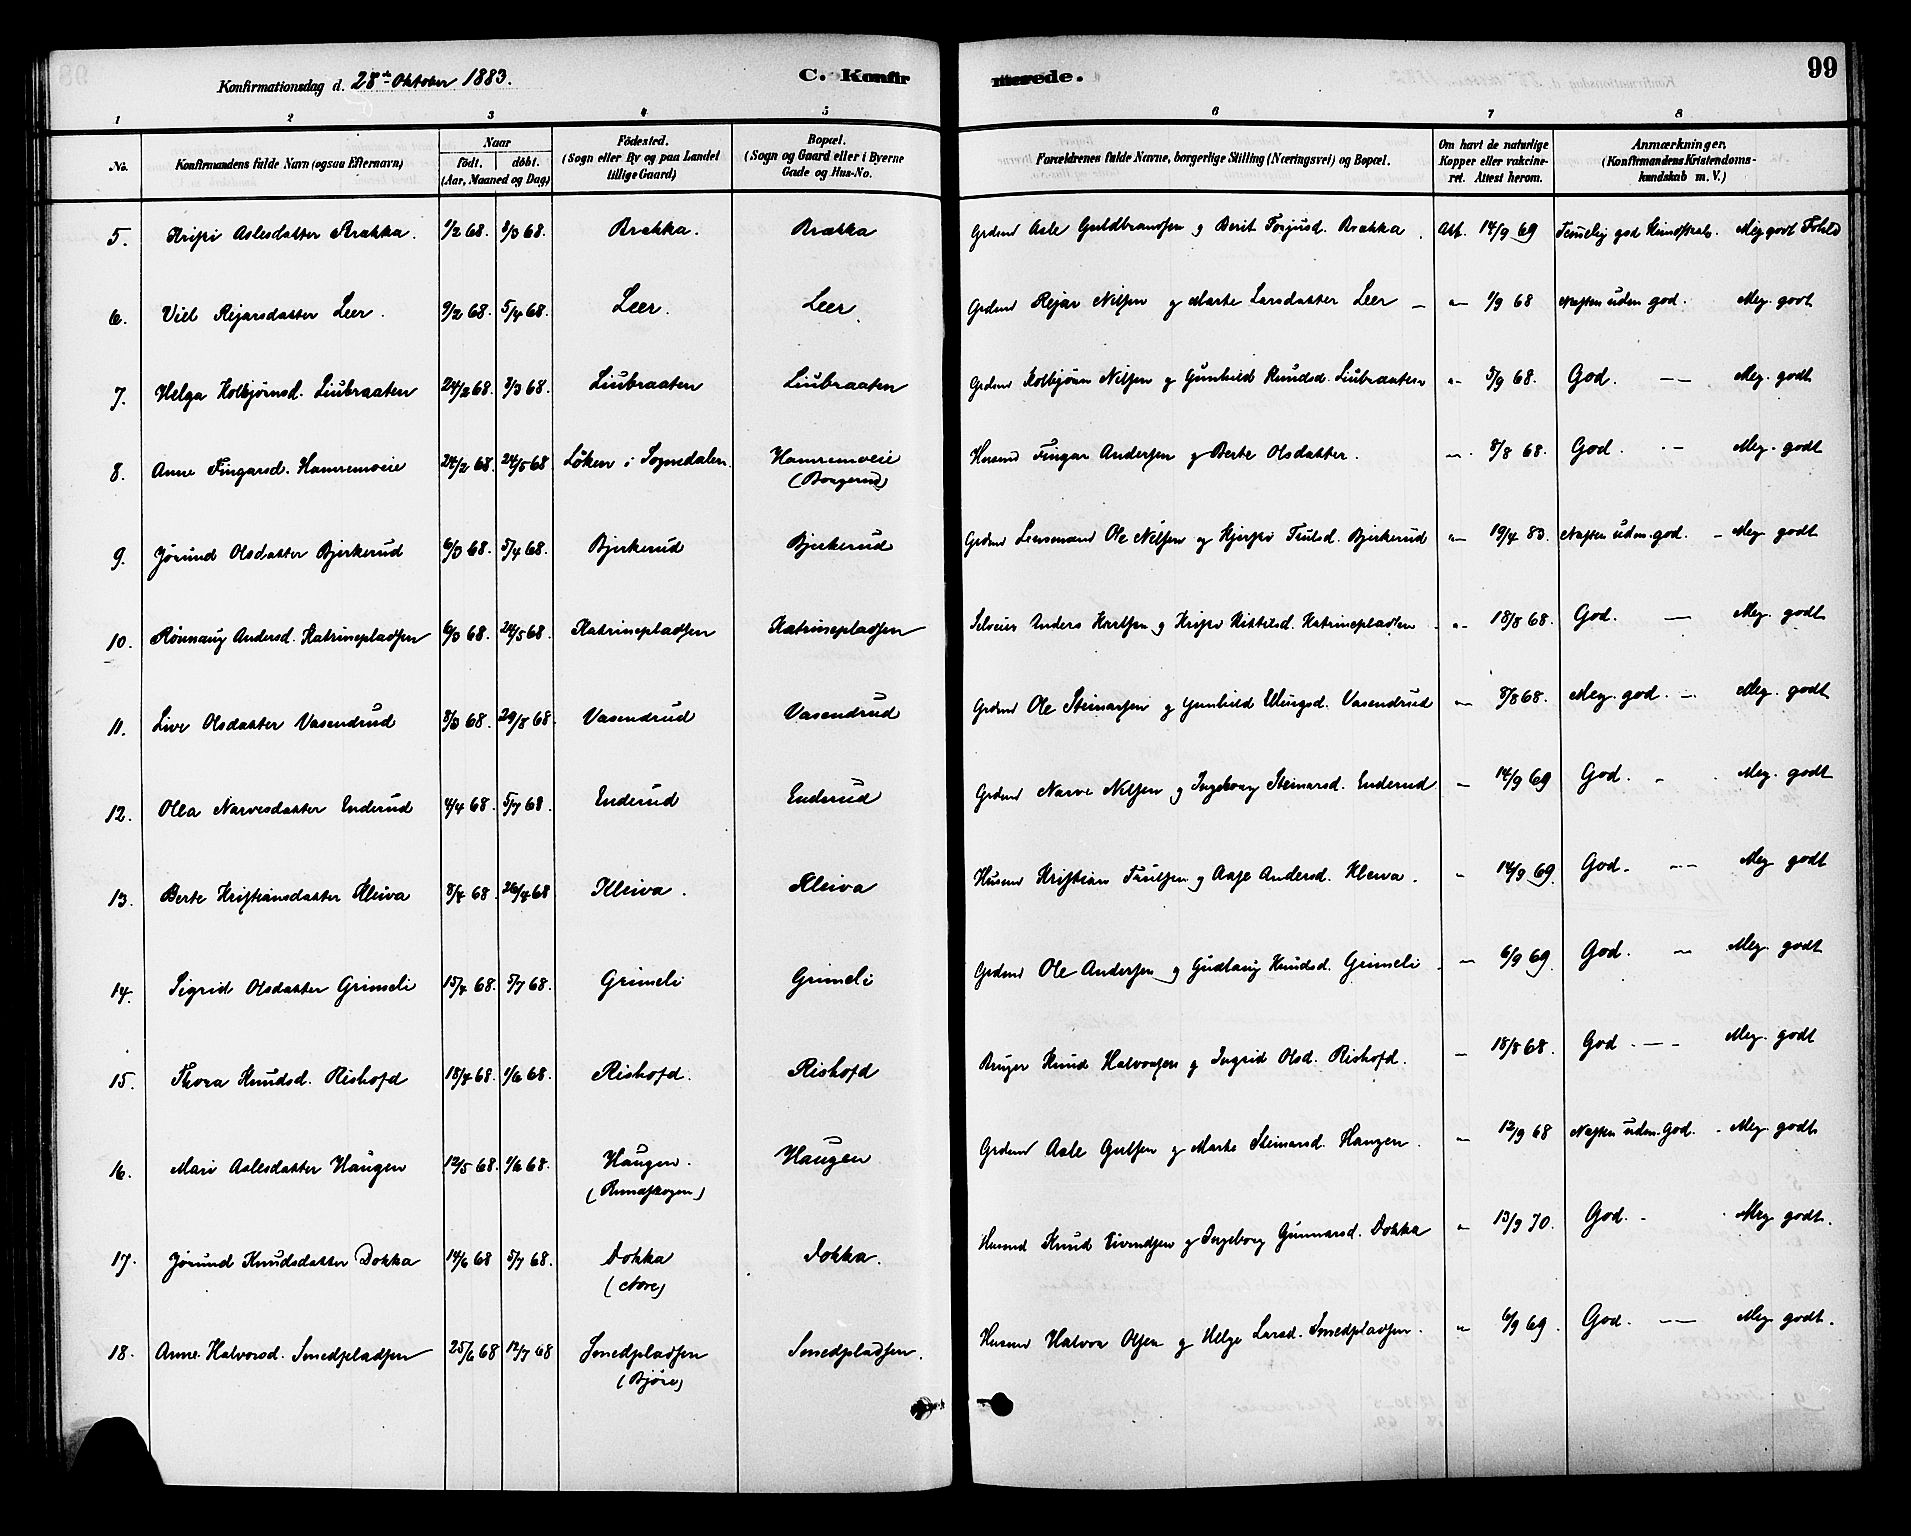 Konfirmationsdag d. 28de Oktober 1883. C. Konfirmerede. 99
1 2 3 4 5 6 7 8
No. Konfirmandens fulde Navn (ogsaa Efternavn) Naar födt. döbt. (Aar, Maaned og Dag) Födested. (Sogn eller By og paa Landet tillige Gaard) Bopæl. (Sogn og Gaard eller i Byerne Gade og Hus-No. Forældrenes fulde Navne, borgerlige Stilling (Næringsvei) og Bopæl. Om havt de naturlige Kopper eller vakcineret. Attest herom. Anmærkninger. (Konfirmandens Kristendomskundskab m. V.)
5. Aslesdatter Brække. 1/2 68. 8/3 68. Brække. Brække Grdmd Asle Guldbrandsen og Berit Torjusd. Brække. Att. 14/9 69 Temelig god Kundskab. Meg godt Forhld
6. Viel Rejarsdatter Leer. 9/2 68. 5/4 68. Leer. Leer Grdmd Rejar Nilsen og Marte Larsdatter Leer — " 1/9 68 Næsten udm. god. Meg. godt
7. Helga Kolbjørnsd. Liubraaten 24/2 68. 8/3 68. Liubraaten Liubraaten Grdmd Kolbjørn Nilsen og Gunhild Knudsd. Liubraaten " 5/9 68. God. — Meg. godt
8. Anne Fingarsd. Hamremoeie 24/2 68. 24/5 68 Løken i Sognedalen. Hamremoeie Husmd Fingar Andersen og Berte Olsdatter. " 8/8 68. God. — Meg. godt
(Bongerud)
9. Jørund Olsdatter Bjerkerud 6/3 68. 5/4 68. Bjerkerud Bjerkerud Grdmd Lensmand Ole Nilsen og Trulsd. Bjerkerud " 19/4 83. Næsten udm. god. — Meg. godt
10. Rønnaug Andersd. Katrinepladsen 6/3 68. 24/5 68. Katrinepladsen Katrinepladsen Selveier Anders og Kittilsd. Katrinepladsen " 18/8 68. God. — Meg. godt
11. Live Olsdatter Vasendrud 8/3 68. 29/8 68 Vasendrud Vasendrud Grdmd Ole Steinarsen og Gunhild Vasendrud " 8/8 68. Meg. god. — Meg. godt
12. Olea Narvesdatter Enderud 4/4 68. 5/7 68. Enderud Enderud Grdmd Narve Nilsen og Ingeborg Steinarsd. Enderud — 14/9 69 God. Meg. godt
13. Berte Kristiansdatter Kleiva 8/4 68. 26/4 68 Kleiva. Kleiva Husmd Kristian Trulsen og Aase Andersd. Kleiva. " 14/9 69. God. — Meg godt
14. Sigrid Olsdatter Grimeli 15/4 68. 5/7 68. Grimeli Grimeli Grdmd Ole Andersen og Gudlaug Knudsd. Grimeli. — 6/9 69. God. — Meg. godt
15. Thora Knudsd. Rishofd 18/4 68. 1/6 68. Rishofd. Rishofd Bruger Knud Halvorsen og Ingrid Olsd. Rishofd. — 18/8 68. God. — Meg. godt
16. Mari Aslesdatter Haugen 12/5 68. 1/6 68. Haugen. Haugen Grdmd Asle Gulsen og Marte Steinarsd. Haugen. — 12/9 68 Næsten udm. God. Meg. godt
17. Jørund Knudsdatter Dokka 14/6 68 5/7 68. Dokka Dokka. Husmd Knud Eivendsen og Ingeborg Gunnarsd. Dokka " 13/9 70. God. Meg godt.
(Nore)
18. Anne Halvorsd. Smedpladsen 25/6 68 12/7 68 Smedpladsen Smedpladsen. Husmd Halvor Olsen og Helge Larsd. Smedpladsen. " 6/9 69. God. — Meg godt.
(Bjøre)